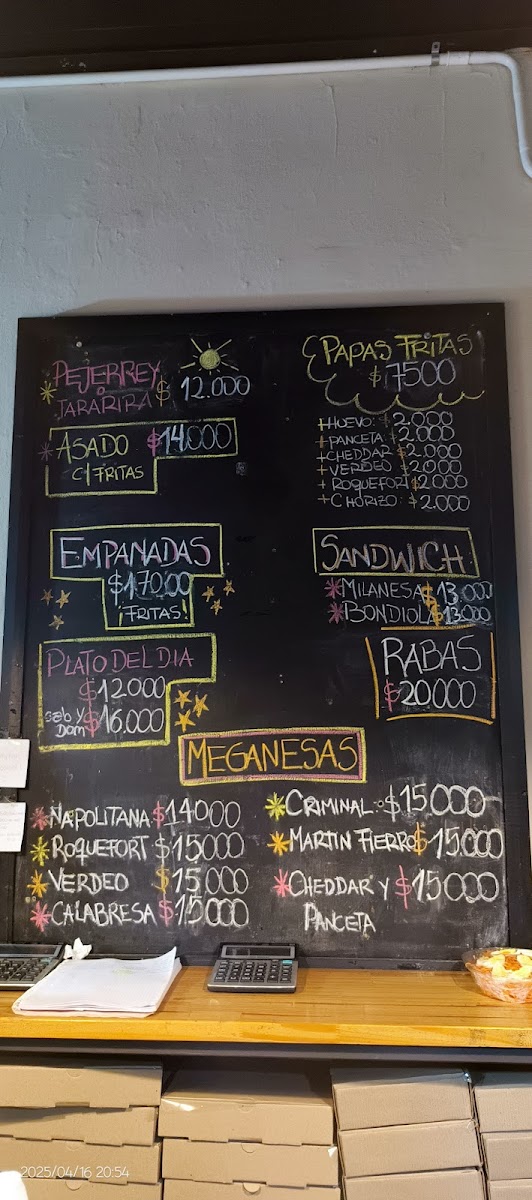 PEJERREY
O
TARARIRA $ 12.000
ASADO $14.000
C/FRITAS
EMPANADAS
$1700
¡FRITAS!
PLATO DEL DIA
$12.000
SAB Y DOM $16.000
PAPAS FRITAS
$7500
+HUEVO: $2.000
+PANCETA: $2.000
+CHEDDAR $2.000
+VERDEO $2.000
+ROQUEFORT $2.000
+CHORIZO: $2.000
SANDWICH
*MILANESA $13.000
*BONDIOLA $13.000
RABAS
$20.000
MEGANESAS
*NAPOLITANA $14000
*ROQUEFORT $15,000
*VERDEO $15.000
*CALABRESA $15.000
*CRIMINAL: $15.000
*MARTIN FIERRO $15.000
*CHEDDAR Y $15000
PANCETA
2025/04/16 20:54